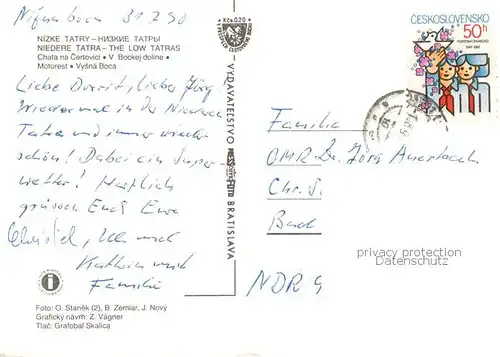 Nižna boca 31.7.90
Kčs 0,20
NÍZKE TATRY – НИЗКИЕ ТАТРЫ
NIEDERE TATRA – THE LOW TATRAS
Chata na Čertovici • V Bockej doline •
Motorest • Vyšná Boca
Liebe Dorrit, lieber Jörg
Wieder mal in der Niederen
Tatra und immer wieder
schön! Dabei ein Super
wetter! Herzlich
grüssen Euch Eure
Christel, und
Kathrin und
Familie
Foto: O. Staněk (2), B. Zemiar, J. Nový
Grafický návrh: Z. Vágner
Tlač: Grafobal Skalica
VYDAVATEĽSTVO
BRATISLAVA
ČESKOSLOVENSKO
50h
Familie
OMR Dr. Jörg Auerbach
Chr. S.
Bad
privacy protection
Datenschutz
NDR 9